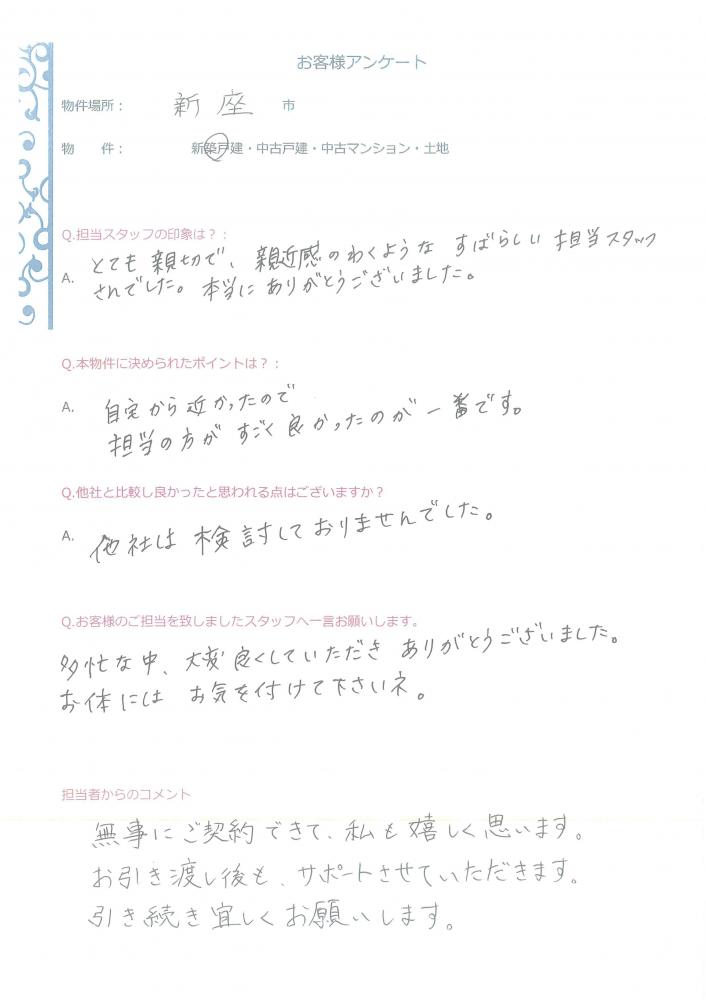 お客様アンケート
物件場所： 新座 市
物 件： 新築戸建・中古戸建・中古マンション・土地
Q.担当スタッフの印象は？：
A. とても親切で、親近感のわくような すばらしい 担当スタッフ
さんでした。本当にありがとうございました。
Q.本物件に決められたポイントは？：
A. 自宅から近かったので
担当の方が すごく良かったのが一番です。
Q.他社と比較し良かったと思われる点はございますか？
A. 他社は検討しておりませんでした。
Q.お客様のご担当を致しましたスタッフへ一言お願いします。
多忙な中、大変良くしていただき ありがとうございました。
お体には お気を付けて下さいネ。
担当者からのコメント
無事にご契約できて、私も嬉しく思います。
お引き渡し後も、サポートさせていただきます。
引き続き宜しくお願いします。